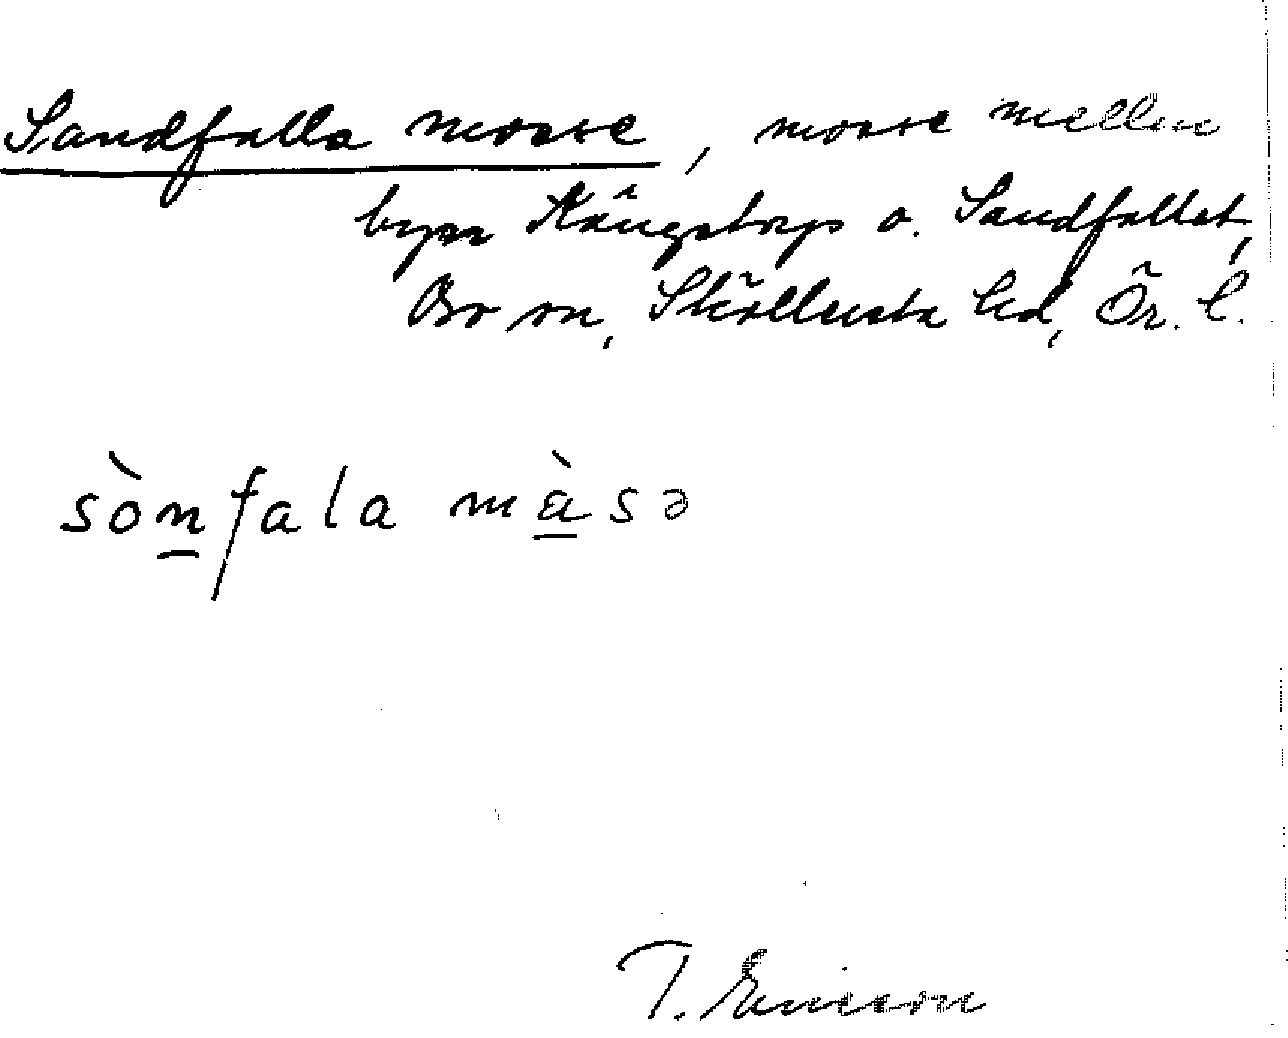 Sandfalla mosse, mosse mellan
byar Kängstorp o. Sandfallet,
Bo sn, Sköllersta hd, Ör. l.
sònfala màsə
T. Ericson